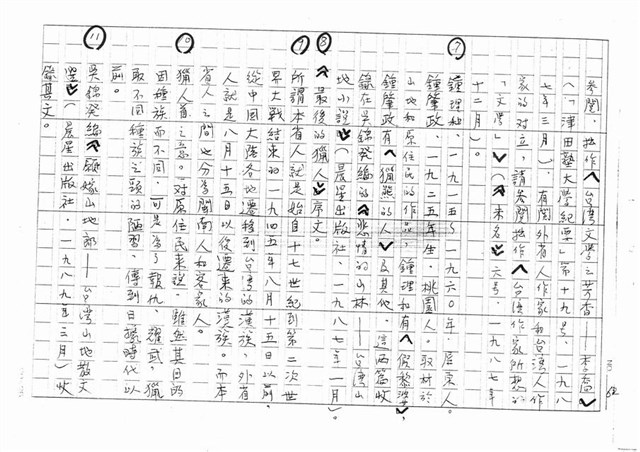 參閱，拙作《台灣文學之芳香——李喬》
（「津田塾大學紀要」第十九号，一九八
七年三月），有関外省人作家和台湾人作
家的对立，請参閱拙作《台湾作家所想的
「文學」》（《未名》六号，一九八七年
十二月）。
⑦
鍾理和，一九一五～一九六〇年，屏東人。
鍾肇政，一九二五年生，桃園人。取材於
山地和原住民的作品，鍾理和有《假黎婆》，
鍾肇政有《獵熊的人》及其他，這两篇收
錄在吳錦発編的《悲情的山林——台湾山
地小説》（晨星出版社，一九八七年一月）
⑧
《最後的獵人》序文。
⑨
所謂本省人就是始自十七世紀到第二次世
界大戰結束的一九四五年八月十五日以前，
從中国大陸各地遷移到台湾的漢族，外省
人就是八月十五日以後遷來的漢族。而本
省人之間也分為閩南人和客家人。
⑩
獵人首之意。对原住民來説，雖然其目的
因種族而不同，可是為了報仇，耀武，獵
取不同種族之頭的陋習，傳到日據時代以
前。
⑪
吳錦発編《願嫁山地郎——台湾山地散文
選》（晨星出版社，一九八九年三月）收
錄其文。